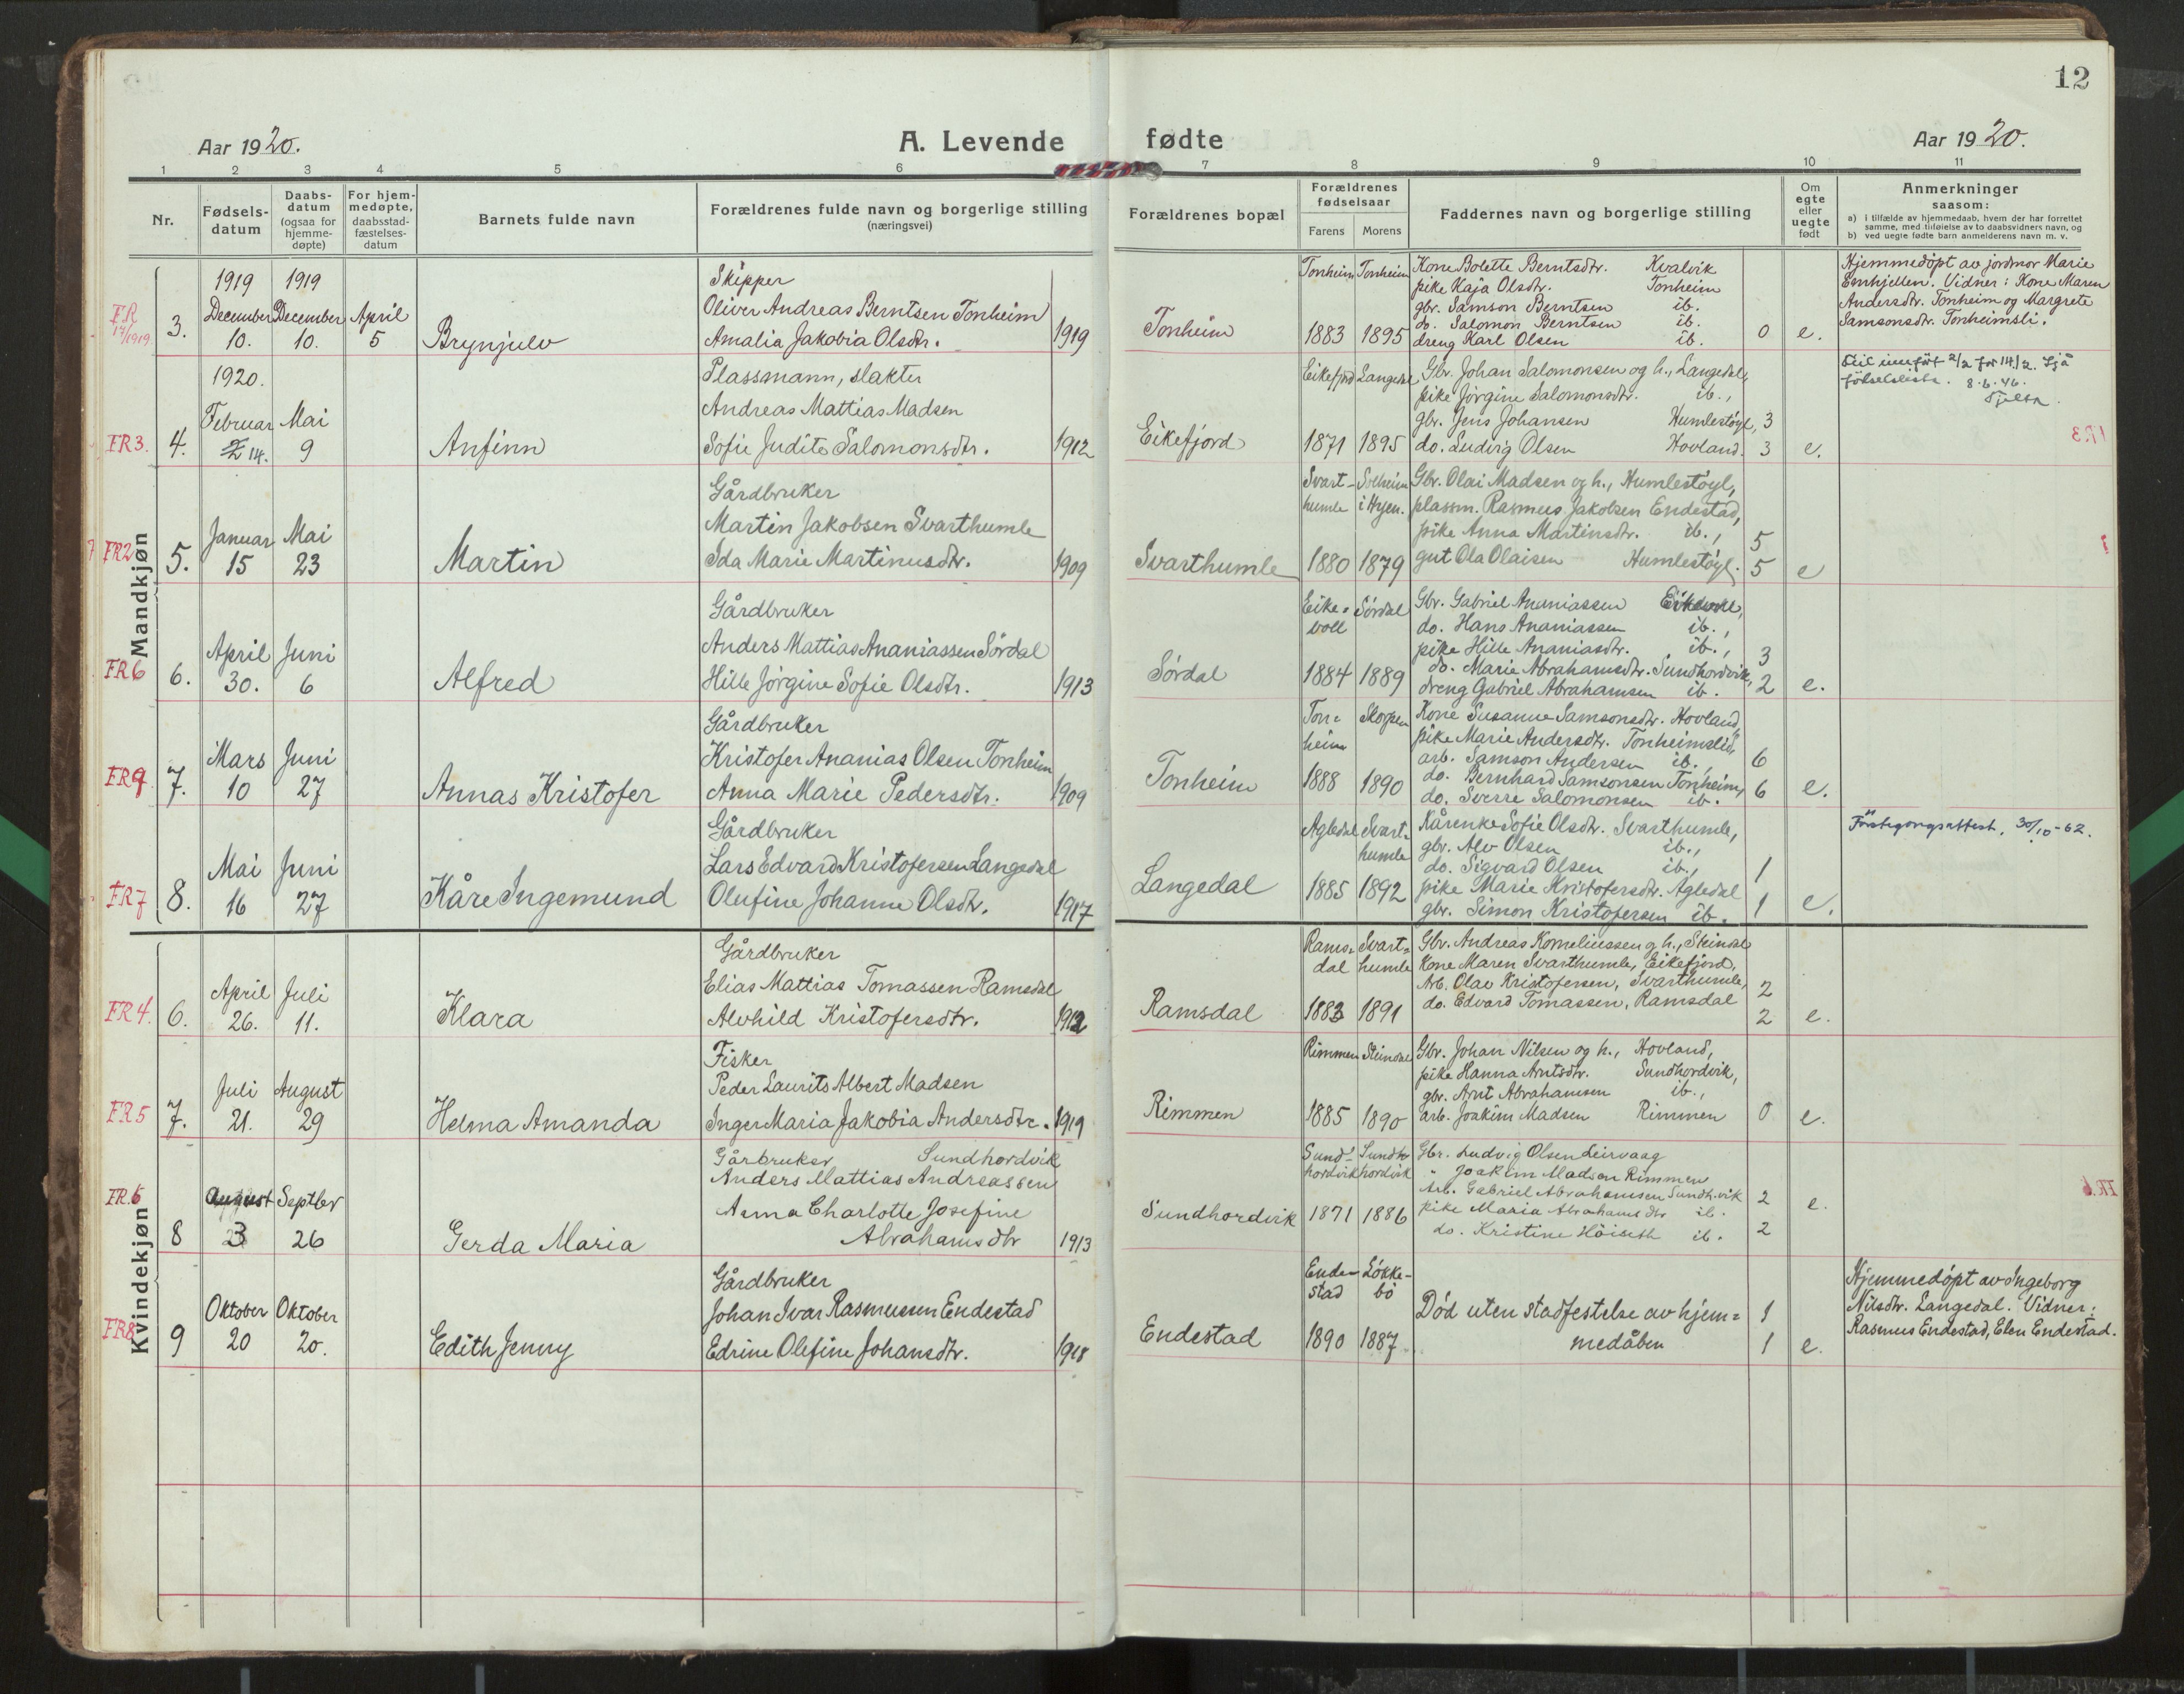 12
Aar 1920.
A. Levende fødte
Aar 1920.
1 2 3 4 5 6 7 8 9 10 11
Nr.
Fødsels-
datum
Daabs-
datum
(ogsaa for
hjemme-
døpte)
For hjem-
medøpte,
daabsstad-
fæstelses-
datum
Barnets fulde navn
Forældrenes fulde navn og borgerlige stilling
(næringsvei)
Forældrenes bopæl
Forældrenes
fødselsaar
Farens Morens
Faddernes navn og borgerlige stilling
Om
egte
eller
uegte
født
Anmerkninger
saasom:
a) i tilfælde av hjemmedaab, hvem der har forrettet
samme, med tilføielse av to daabsvidners navn, og
b) ved uegte fødte barn anmelderens navn m. v.
Mandkjøn
FR
14/1919
3.
1919
December
10.
1919
December
10.
April
5
Brynjulv
Skipper
Oliver Andreas Berntsen Tonheim
Amalia Jakobia Olsdtr. 1919
Tonheim
Tonheim Tonheim
1883 1895
Kone Bolette Berntsdtr. Kvalvik
pike Kaja Olsdtr. Tonheim
gbr. Samson Berntsen ib.
do. Salomon Berntsen ib.
dreng Karl Olsen ib.
0 e.
Hjemmedöpt av jordmor Marie
Emhjellen. Vidner: Kone Maren
Andersdtr. Tonheim og Margrete
Samsonsdtr. Tonheimsli.
FR3.
4.
1920.
Februar
2 14.
Mai
9
Anfinn
Plassmann, slakter
Andreas Mattias Madsen
Sofie Judite Salomonsdtr. 1912
Eikefjord
Eikefjord Langedal
1871 1895
Gbr. Johan Salomonsen og h., Langedal,
pike Jörgine Salomonsdtr. ib.,
gbr. Jens Johansen Humlestöyl, 3
do. Ludvig Olsen Hovland. 3
e.
Feil innfört 2/2 for 14/2. Sjå
8.6.46.
FR2
5.
Januar
15
Mai
23
Martin
Gårdbruker
Martin Jakobsen Svarthumle
Ida Marie Martinusdtr. 1909
Svarthumle
Svart-
humle
Solheim
i Hyen.
1880 1879
Gbr. Olai Madsen og h., Humlestöyl,
plassm. Rasmus Jakobsen Endestad,
pike Anna Martinsdtr. ib., 5
gut Ola Olaisen Humlestöyl. 5
e
FR6
6.
April
30.
Juni
6
Alfred
Gårdbruker
Anders Mattias Ananiassen Sördal
Hille Jörgine Sofie Olsdtr. 1913
Sördal
Eike-
voll
Sördal
1884 1889
Gbr. Gabriel Ananiassen
do. Hans Ananiassen ib.,
pike Hille Ananiasdtr. ib., 3
do. Marie Abrahamsdtr. Sundhordvik, 2
dreng Gabriel Abrahamsen ib.
e.
FR9
7.
Mars
10
Juni
27
Annas Kristofer
Gårdbruker
Kristofer Ananias Olsen Tonheim
Anna Marie Pedersdtr. 1909
Tonheim
Ton=
heim
Skorpen
1888 1890
Kone Susanne Samsonsdtr. Hovland,
pike Marie Andersdtr. Tonheimslid,
arb. Samson Andersen ib., 6
do. Bernhard Samsonsen Tonheim, 6
do. Sverre Salomonsen ib.
e.
FR7
8.
Mai
16
Juni
27
Kåre Ingemund
Gårdbruker
Lars Edvard Kristofersen Langedal
Olufine Johanne Olsdtr. 1917
Langedal
Agledal Svart-
humle
1885 1892
Kårenke Sofie Olsdtr. Svarthumle,
gbr. Alv Olsen ib.,
do. Sigvard Olsen ib., 1
pike Marie Kristofersdtr. Agledal 1
gbr. Simon Kristofersen ib.
e.
Förstegongsattest. 30/10-62.
Kvindekjøn
FR4.
6.
April
26.
Juli
11.
Klara
Gårdbruker
Elias Mattias Tomassen Ramsdal
Alvhild Kristofersdtr. 1912
Ramsdal
Rams-
dal
Svart-
humle
1883 1891
Gbr. Andreas Korneliussen og h., Steindal
Kone Maren Svarthumle, Eikefjord,
Arb. Olav Kristofersen, Svarthumle, 2
do. Edvard Tomassen, Ramsdal 2
e.
FR5
7.
Juli
21.
August
29
Helma Amanda
Fisker
Peder Laurits Albert Madsen
Inger Maria Jakobia Andersdtr. 1919
Rimmen
Rimmen Steindal
1885 1890
Gbr. Johan Nilsen og h., Hovland,
pike Hanna Arntsdtr. Sundhordvik,
gbr. Arnt Abrahamsen ib.,
arb. Joakim Madsen Rimmen 0
e.
FR.6
8
August
3
Septbr
26
Gerda Maria
Gårbruker Sundhordvik
Anders Mattias Andreassen
Anna Charlotte Josefine
Abrahamsdtr 1913
Sundhordvik
Sund-
hordvik
Sundh
hordvik
1871 1886
Gbr. Ludvig Olsen Leirvaag
" Joakim Madsen Rimmen
Arb. Gabriel Abrahamsen Sundh.vik 2
pike Maria Abrahamsdtr ib.
do. Kristine Höiseth ib. 2
e.
FR8
9
Oktober
20
Oktober
20.
Edith Jenny
Gårdbruker
Johan Ivar Rasmussen Endestad
Edrine Olefine Johansdtr. 1918
Endestad
Ende-
stad
Lökke-
bö
1890 1887
Död uten stadfestelse av hjem= 1
medåben 1
e.
Hjemmedöpt av Ingeborg
Nilsdtr. Langedal. Vidner:
Rasmus Endestad, Elen Endestad.